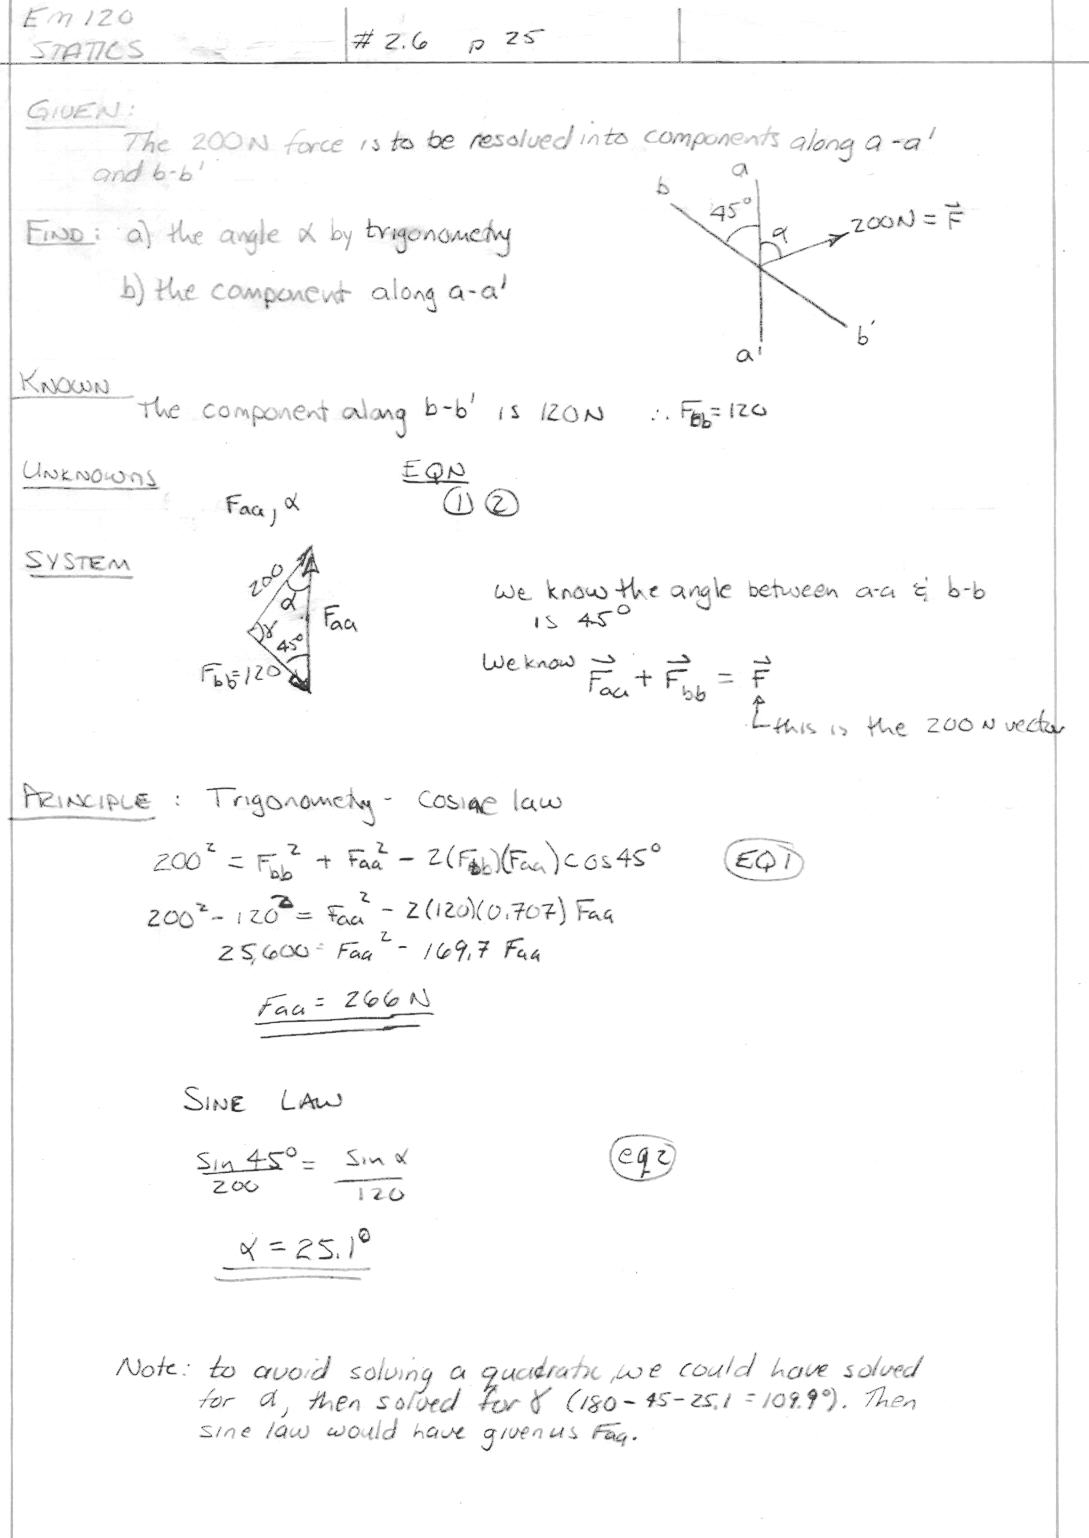 EM 120
STATICS
# 2.6 p 25
GIVEN:
The 200N force is to be resolved into components along a-a'
and b-b'
a
b
45°
α
200N = F⃗
b'
a'
FIND: a) the angle α by trigonometry
b) the component along a-a'
KNOWN
The component along b-b' is 120N ∴ Fbb = 120
UNKNOWNS
EQN
Faa, α
① ②
SYSTEM
200
α
Faa
γ
45°
Fbb=120
We know the angle between a-a & b-b
is 45°
We know F⃗aa + F⃗bb = F⃗
this is the 200 N vector
PRINCIPLE : Trigonometry - cosine law
200² = Fbb² + Faa² - 2(Fbb)(Faa)cos45° EQ1
200² - 120² = Faa² - 2(120)(0.707) Faa
25,600 = Faa² - 169.7 Faa
Faa = 266 N
SINE LAW
Sin 45°/200 = Sin α/120 eq2
α = 25.1°
Note: to avoid solving a quadratic, we could have solved
for α, then solved for γ (180-45-25.1 = 109.9°). Then
sine law would have given us Faa.